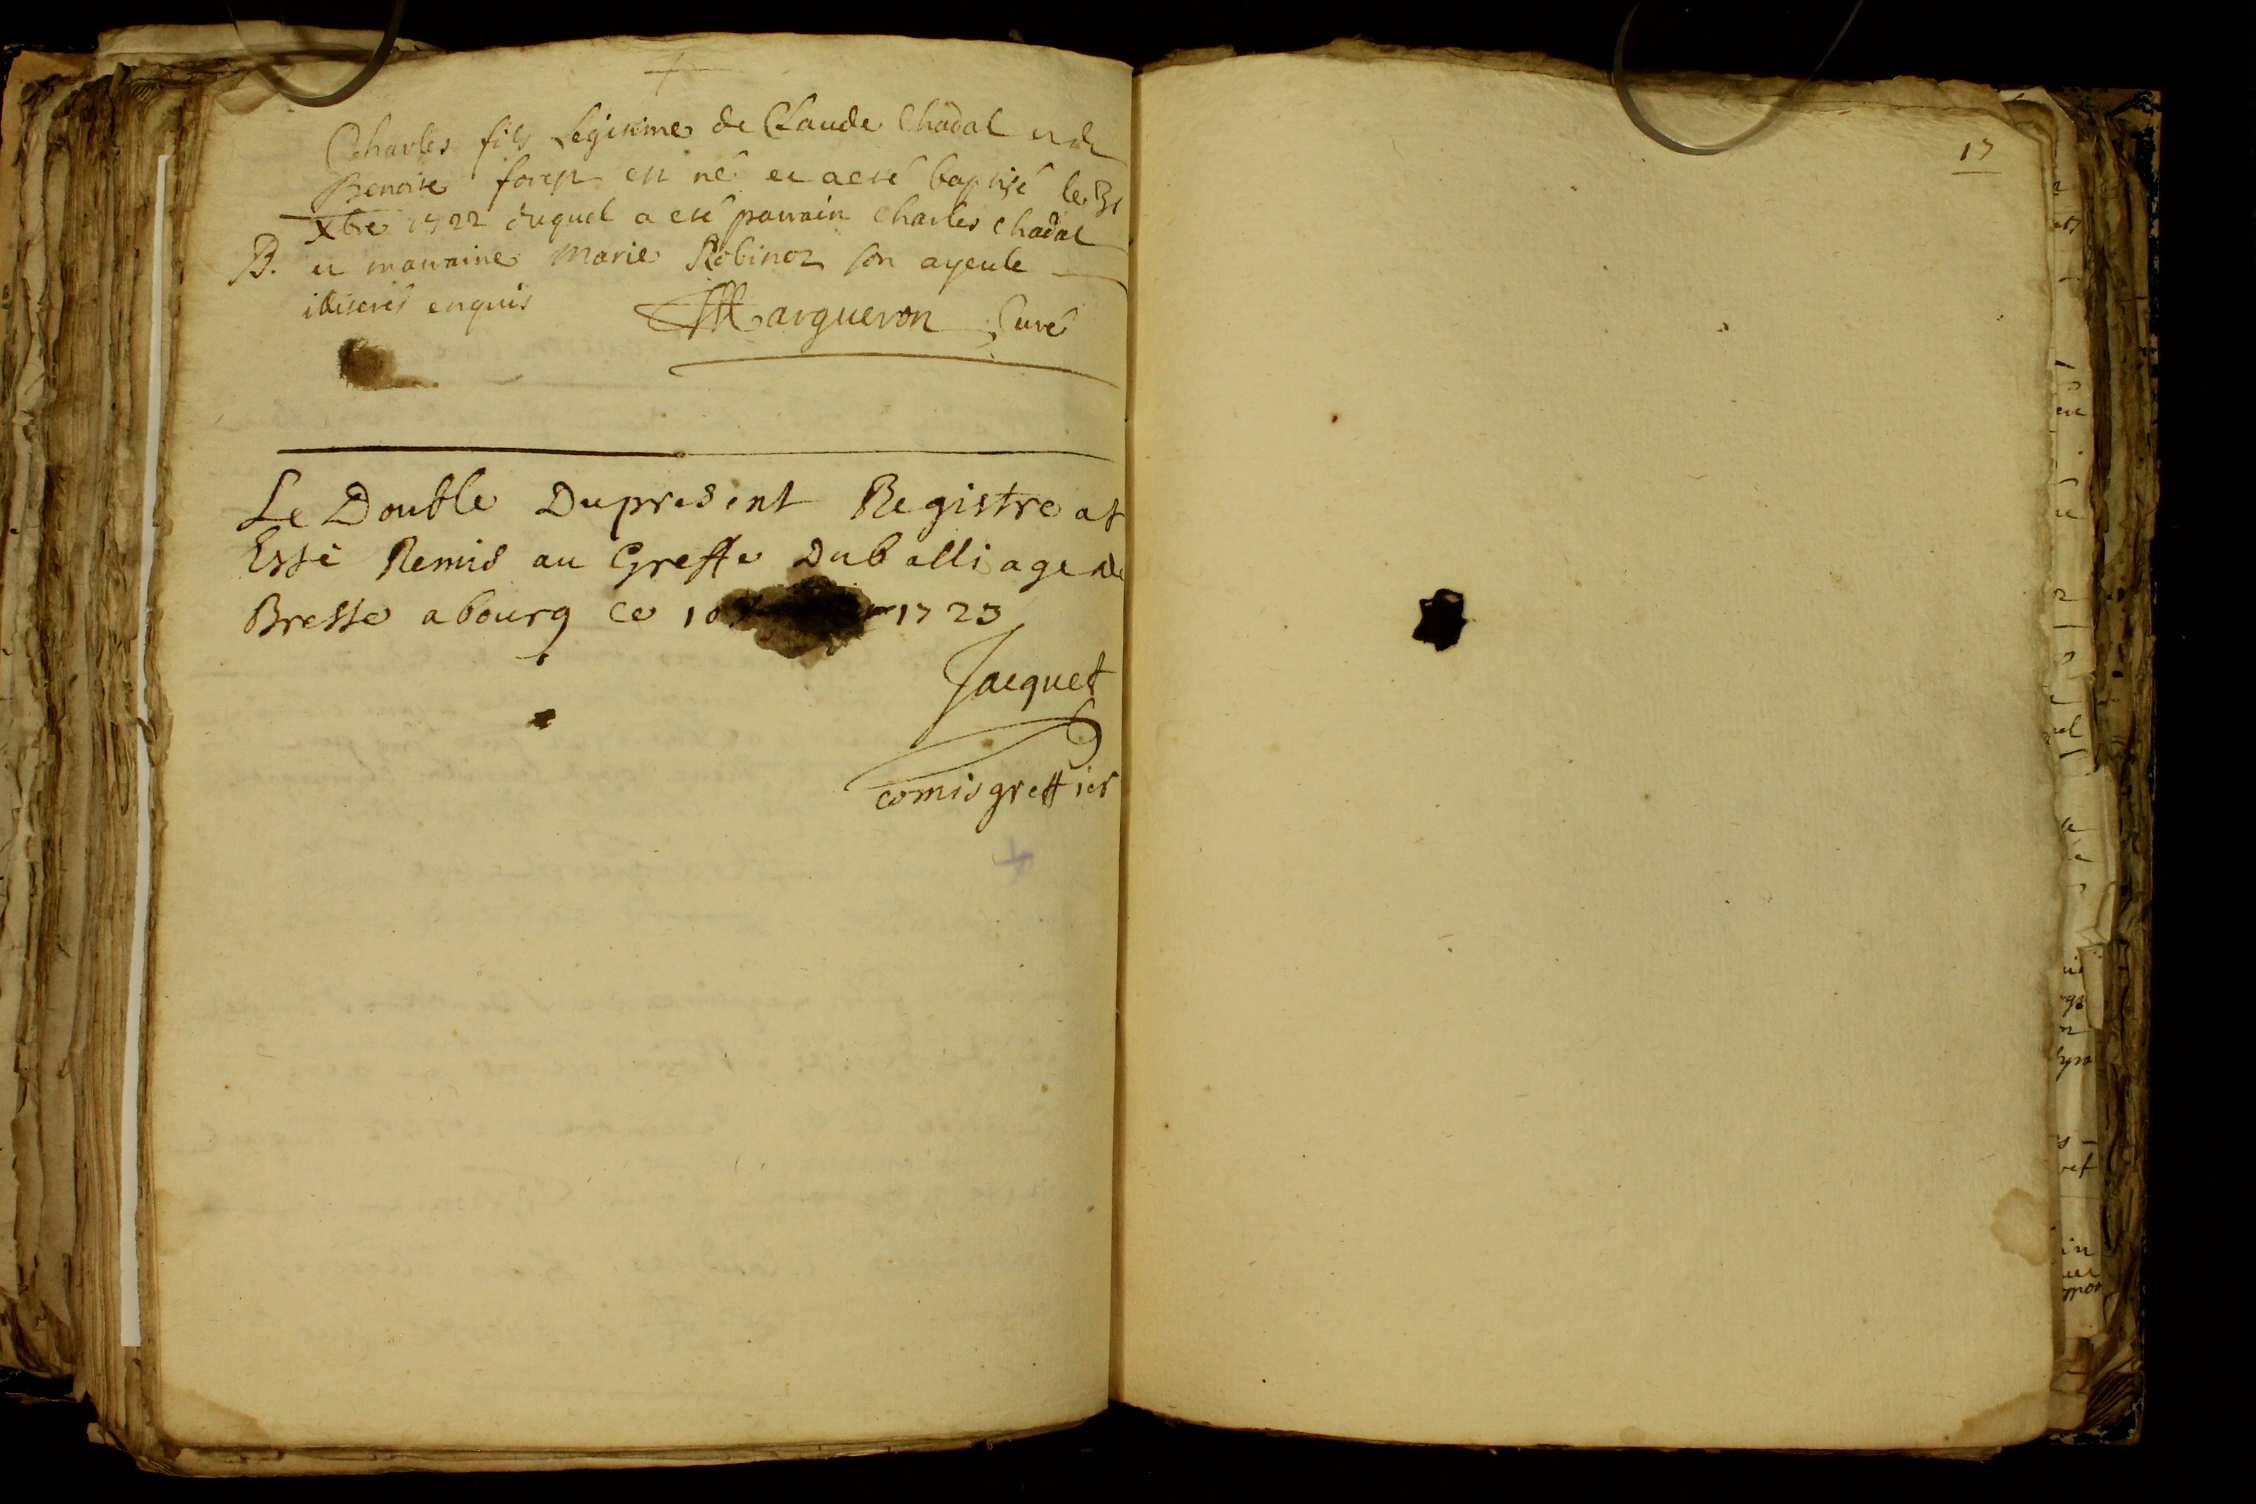 Charles fils Legitime de Claude Chadal et de
Benoite forest est né et a eté baptisé le 31
xbre 1722 duquel a eté parrain Charles Chadal
B. et marraine Marie Robinot son ayeule
illiterés enquis Margueron Curé
Le Double Dupresent Registre at
Esté Remis au Greffe Duballiage de
Bresse abourg ce 10 1723
Jacquet
comis greffier
17